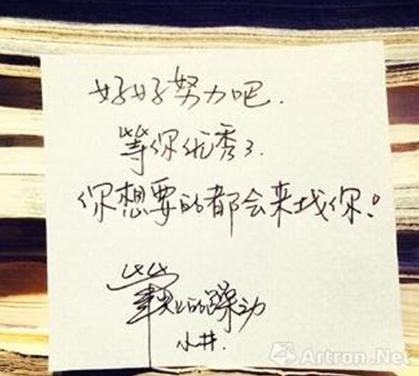 好好努力吧.
等你优秀了.
你想要的都会来找你!
的躁动
小井.
Artron.Net